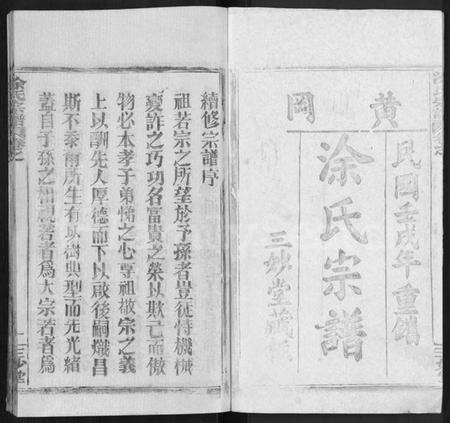 黃岡
民國壬戌年重鐫
涂氏宗譜
三妙堂藏
續修宗譜序
祖若宗之所望於予孫者豈徒恃機械
變詐之巧功名富貴之榮以欺己而傲
物必本孝于弟悌之心尊祖敬宗之義
上以酬先人厚德而下以啟後嗣熾昌
斯不忝爾所生有以樹典型而先光緒
蓋自子孫之相視若者為大宗若者為
涂氏宗譜
三妙堂